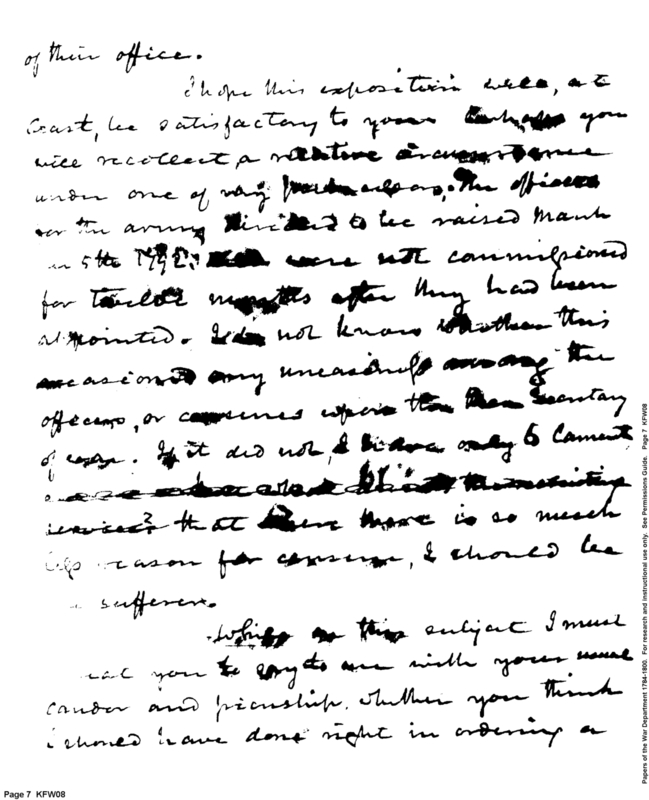 of their office.
I hope this exposition will, at
least, be satisfactory to you. Perhaps you
will recollect a relative circumstance
under one of my predecessors. The officers
for the army directed to be raised March
5th 1792, were not commissioned
for twelve months after they had been
appointed. I do not know whether this
occasioned any uneasiness among the
officers, or censures upon the then Secretary
of war. If it did not, I have only to lament
services? that where there is so much
less reason for censure, I should be
a sufferer.
Whilst on this subject I must
you to say to me with your usual
candor and friendship, whether you think
I should have done right in ordering a
Page 7 KFW08
Papers of the War Department 1784-1800. For research and instructional use only. See Permissions Guide. Page 7 KFW08